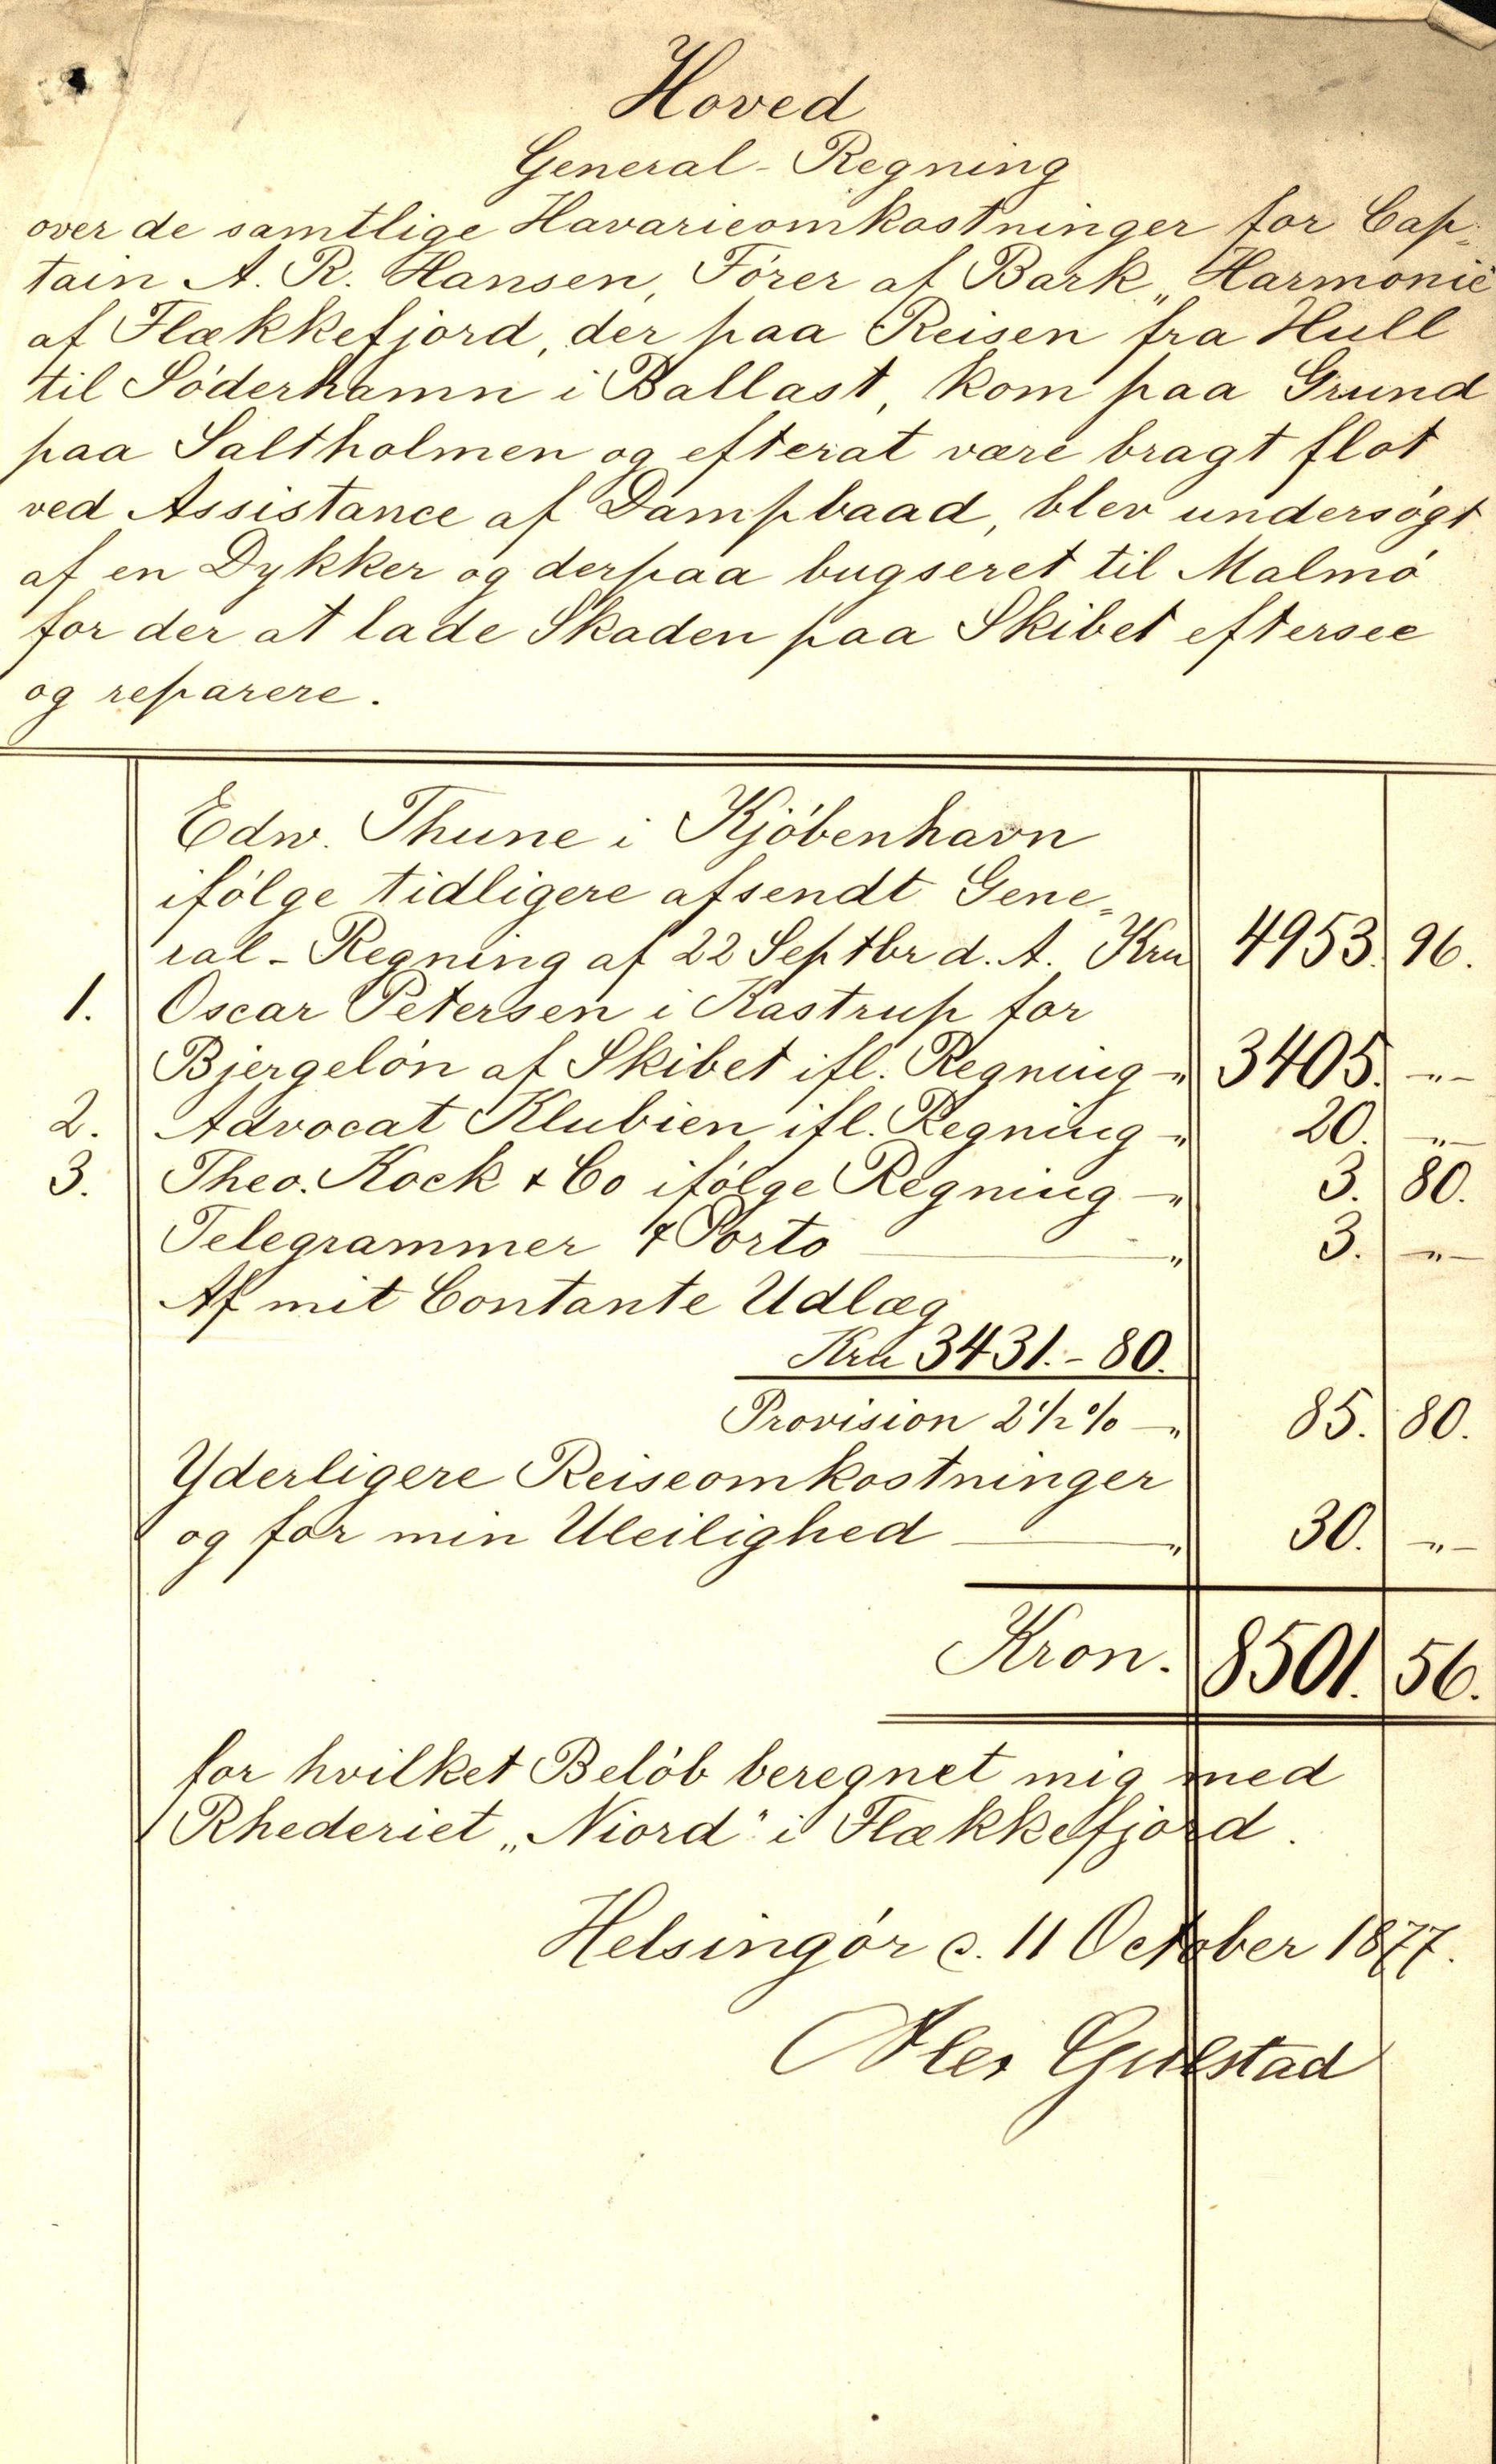 Hoved
General-Regning
over de samtlige Havarieomkostninger for Cap-
tain A. R. Hansen, Fórer af Bark „Harmonie"
af Flækkefjord, der paa Reisen fra Hull
til Sóderhamn i Ballast, kom paa Grund
paa Saltholmen og efterat være bragt flot
ved Assistance af Dampbaad, blev undersógt
af en Dykker og derpaa bugseret til Malmó
for der at lade Skaden paa Skibet eftersee
og reparere.
Edw. Thune i Kjóbenhavn
ifólge tidligere afsendt Gene=
ral-Regning af 22 Septbr d. A. Krn 4953. 96.
1. Oscar Petersen i Kastrup for
Bjergelón af Skibet ifl. Regning -„ 3405. -„-
2. Advocat Klubien ifl. Regning -„ 20. -„-
3. Theo. Kock & Co ifólge Regning -„ 3. 80.
Telegrammer & Porto — „ 3. -„-
Af mit Contante Udlæg
Krn 3431.-80.
Provision 2½% -„ 85. 80.
Yderligere Reiseomkostninger
og for min Uleilighed — „ 30. -„-
Kron. 8501. 56.
for hvilket Belób beregnet mig med
Rhederiet „Niord" i Flækkefjord.
Helsingór d. 11 October 1877.
Alex Gulstad